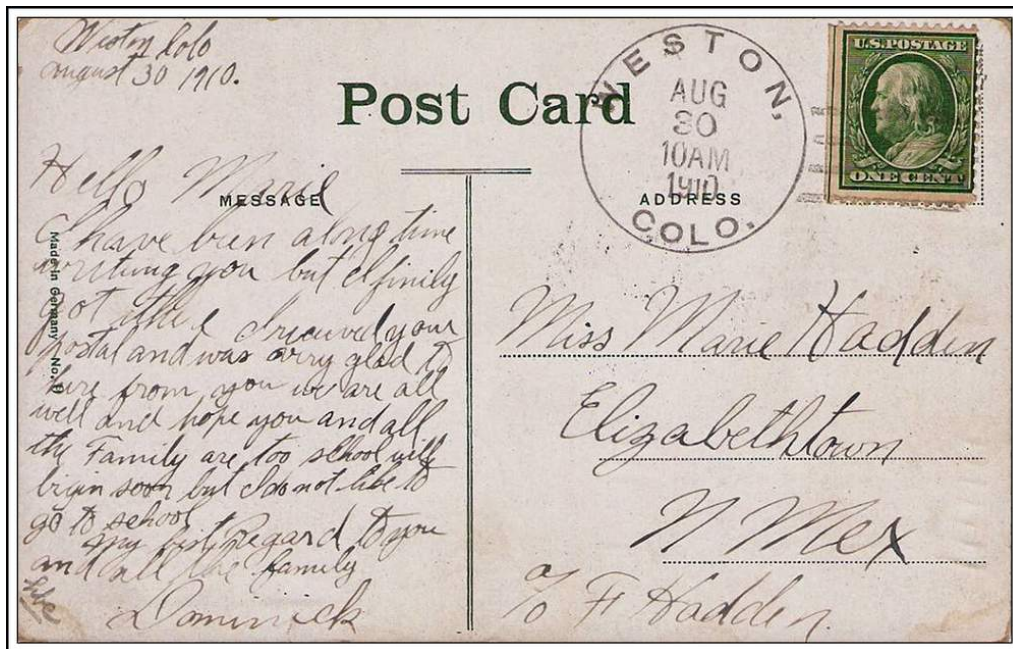 Weston Colo
august 30 1910.
Post Card
WESTON,
AUG
30
10AM
1910
COLO.
U.S. POSTAGE
ONE CENT
MESSAGE
ADDRESS
Made in Germany No.
Hello Marie
I have bun along time
writing you but I finily
got I received your
postal and was very glad to
here from you we are all
well and hope you and all
the Family are too school will
begin soon but I do not like to
go to school
my best Regard to you
and all the family
Dominick
Miss Marie Hadden
Elizabethtown
N Mex
c/o F Hadden.